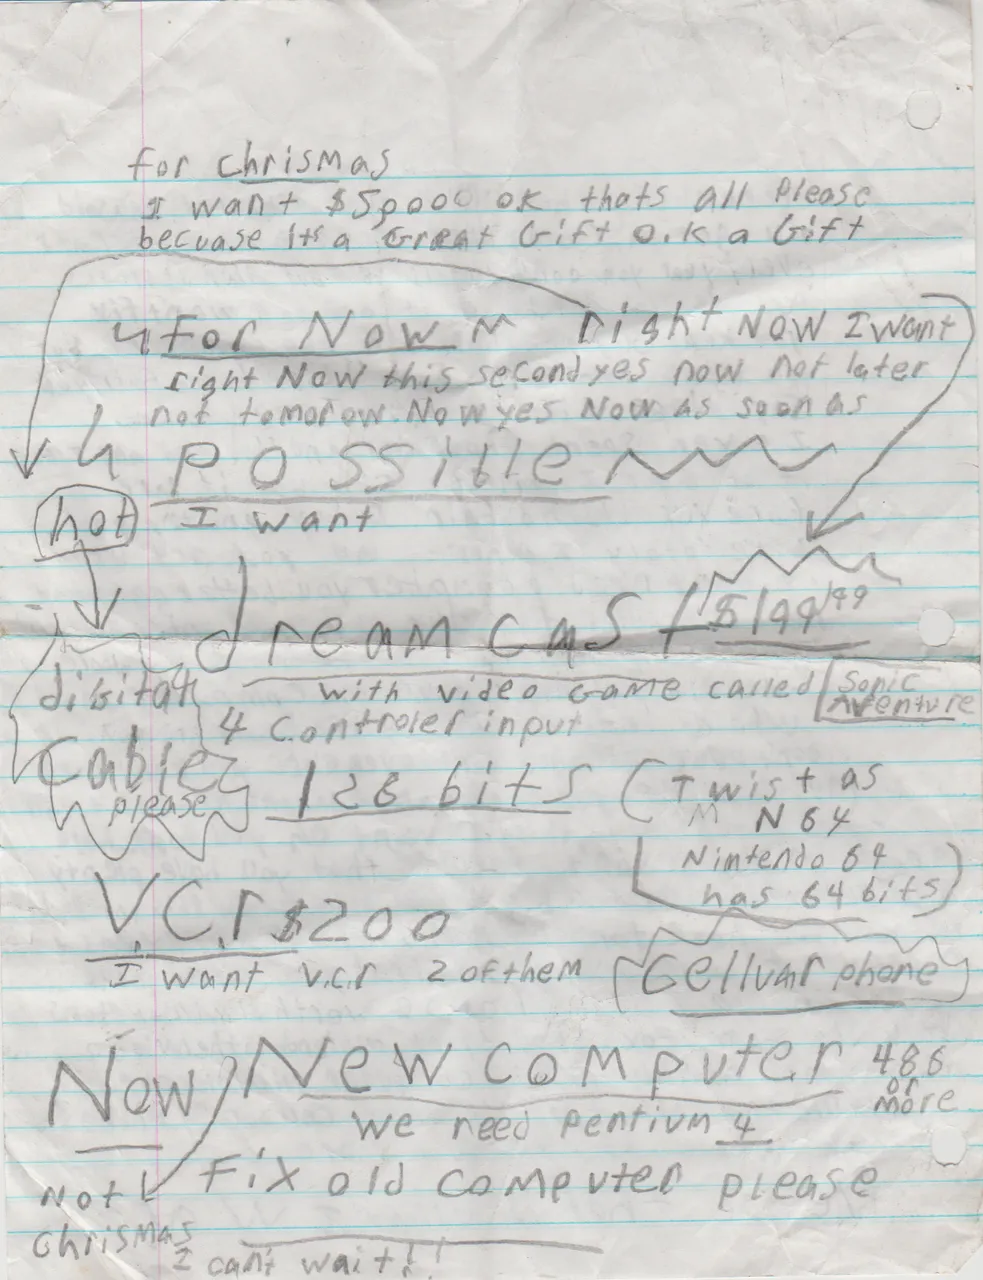 for chrismas
I want $50000 ok thats all please
becuase its a Great Gift O.K a Gift
for Now right NOW I want
right Now this second yes now not later
not tomorow. Now yes Now as soon as
possitle
hot I want
dreamcast $199.99
with video Game called Sonic Aventure
digital cable please
4 Controler input
128 bits (Twist as
N 64
Nimtendo 64
has 64 bits)
V.C.r $200
I want V.C.r 2 of them
Celluar phone
Now New computer 486 or more
We need pentium 4
Fix old computer please
Not chrismas
I can't wait!!